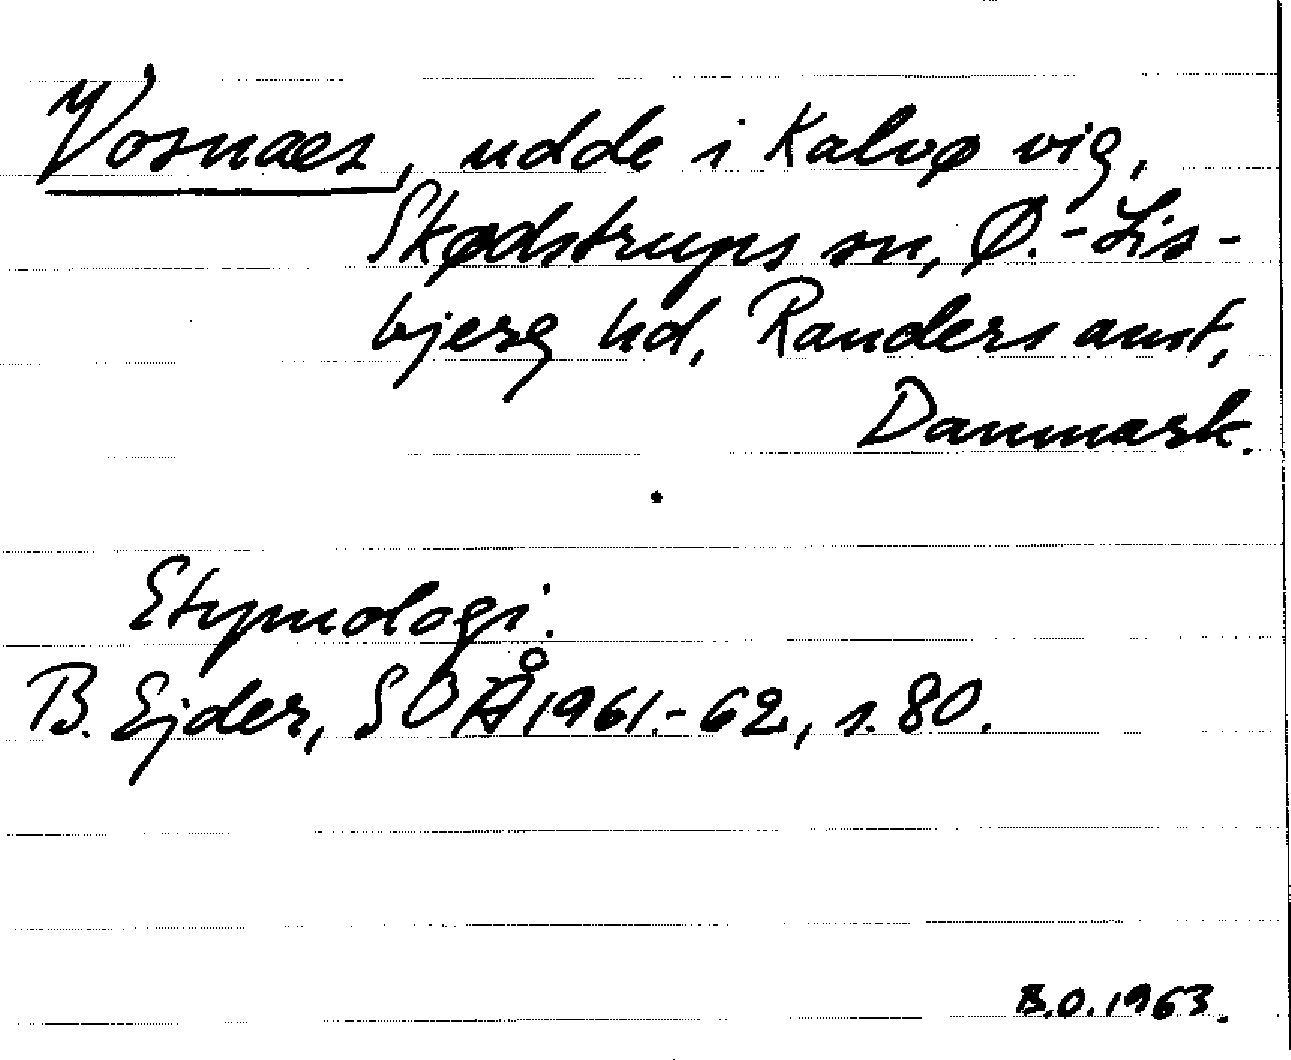 Vosnæs, udde i Kalvø vig,
Skødstrups sn, Ø.-Lis-
bjerg hd, Randers amt,
Danmark.
Etymologi.
B. Ejder, SOÅ 1961.-62, s. 80.
B.O. 1963.